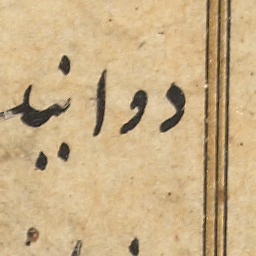 دوانید